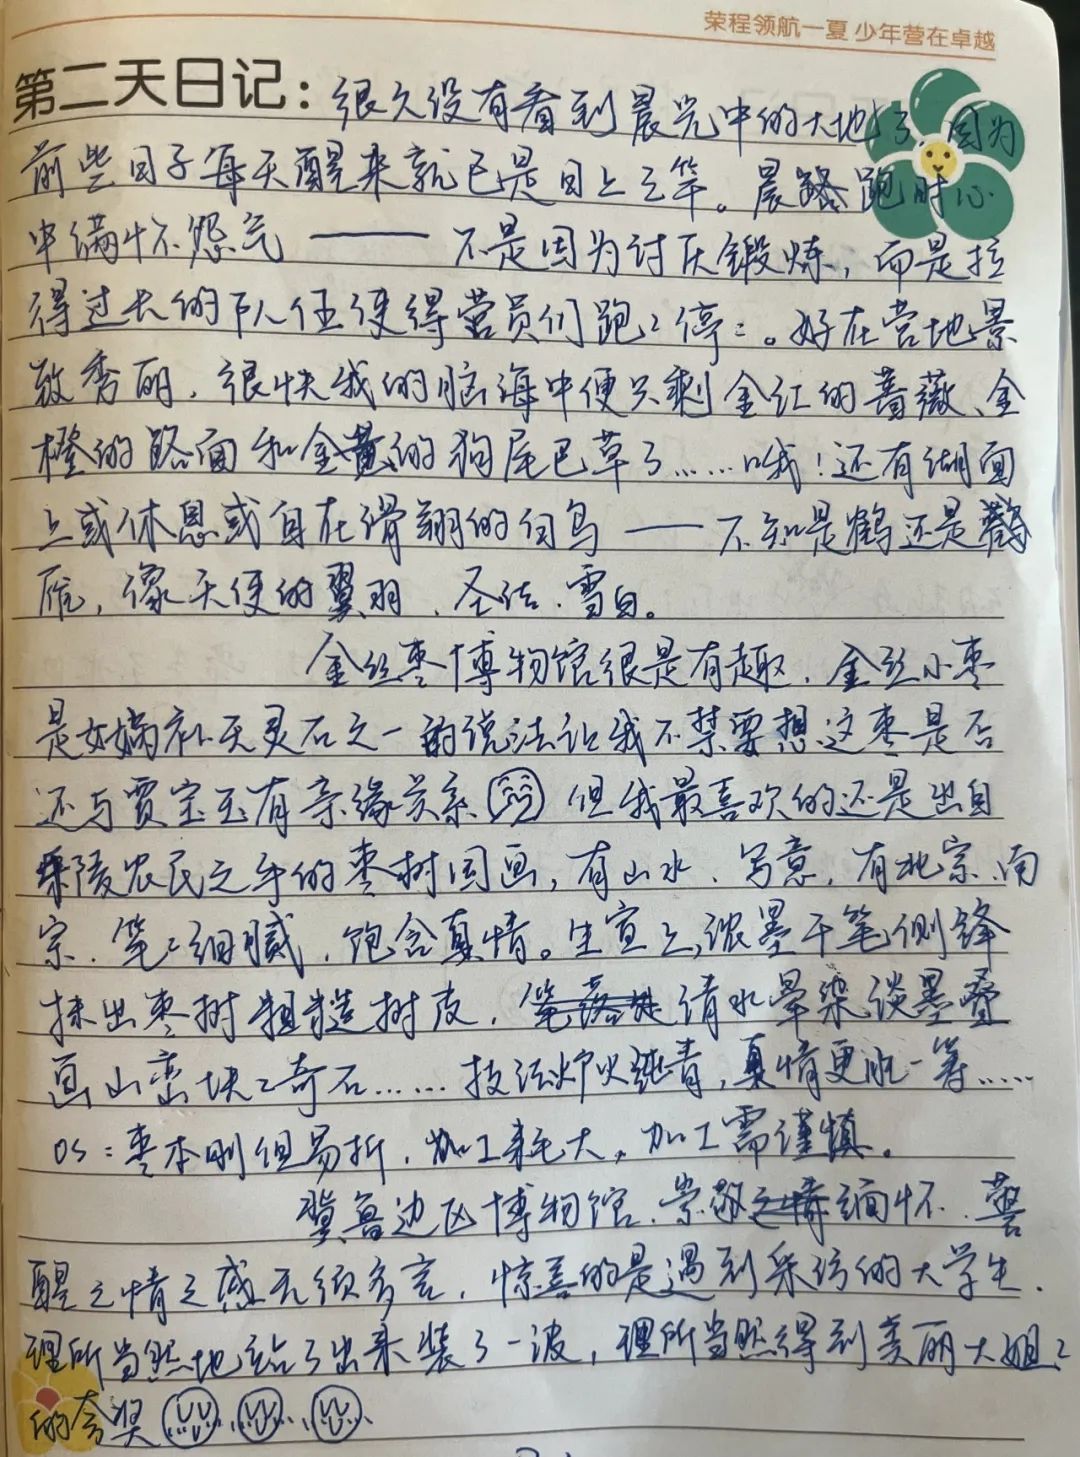 荣程领航一夏 少年营在卓越
第二天日记：很久没有看到晨光中的大地了，因为
前些日子每天醒来就已是日上三竿。晨跑时心
中满怀怨气——不是因为讨厌锻炼，而是拉
得过长的队伍使得营员们跑跑停停。好在营地景
致秀丽，很快我的脑海中便只剩金红的蔷薇、金
橙的路面和金黄的狗尾巴草了……哦！还有湖面
上或休息或自在滑翔的白鸟——不知是鹤还是
雁，像天使的翼羽，圣洁、雪白。
金丝枣博物馆很是有趣，金丝小枣
是女娲补天灵石之一的说法让我不禁要想这枣是否
还与贾宝玉有亲缘关系 但我最喜欢的还是出自
乐陵农民之手的枣树国画，有山水、写意，有北宗、南
宗，笔笔细腻，饱含真情。生宣上，浓墨干笔侧锋
抹出枣树粗糙树皮，清水晕染淡墨叠
画山峦块块奇石……技法炉火纯青，真情更胜一筹……
OS：枣木刚但易折，加工耗大，加工需谨慎。
冀鲁边区博物馆，崇敬缅怀、警
醒之情之感无须多言，惊喜的是遇到采访的大学生，
理所当然地站了出来装了一波，理所当然得到美丽大姐姐
的夸奖